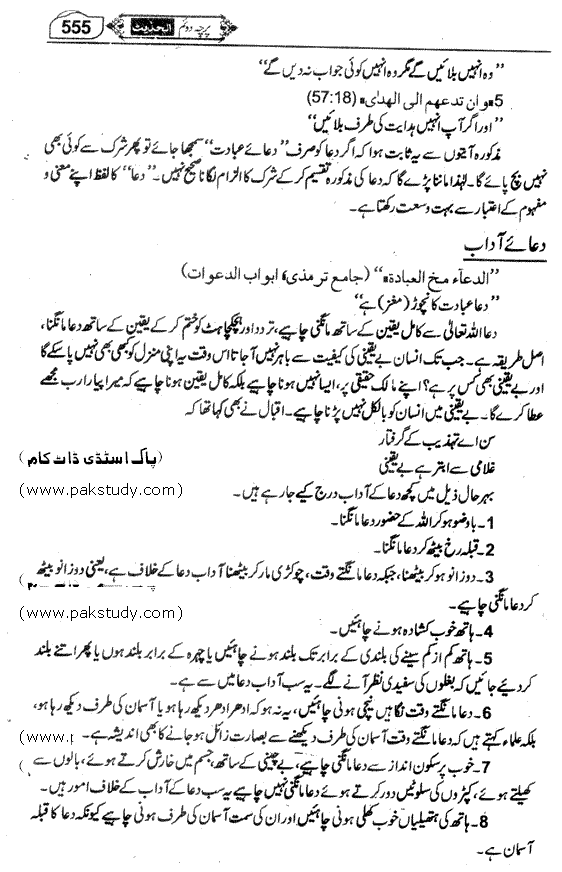 555 الحدیث پرچہ دوئم
’’وہ انہیں بلائیں گے مگر وہ انہیں کوئی جواب نہ دیں گے‘‘
5۔ وان تدعھم الی الھدٰی۔ (57:18)
’’اور اگر آپ انہیں ہدایت کی طرف بلائیں‘‘
مذکورہ آیتوں سے یہ ثابت ہوا کہ اگر دعا کو صرف ’’دعائے عبادت‘‘ سمجھا جائے تو پھر شرک سے کوئی بھی
نہیں بچ پائے گا۔ لہٰذا ماننا پڑے گا کہ دعا کی مذکورہ تقسیم کر کے شرک کا الزام لگانا صحیح نہیں۔ ’’دعا‘‘ کا لفظ اپنے معنی و
مفہوم کے اعتبار سے بہت وسعت رکھتا ہے۔
دعائے آداب
’’الدعآء مخ العبادۃ۔‘‘ (جامع ترمذی، ابواب الدعوات)
’’دعا عبادت کا نچوڑ (مغز) ہے‘‘
دعا اللہ تعالیٰ سے کامل یقین کے ساتھ مانگنی چاہیے، تردد اور ہچکچاہٹ کو ختم کر کے یقین کے ساتھ دعا مانگنا،
اصل طریقہ ہے۔ جب تک انسان بے یقینی کی کیفیت سے باہر نہیں آ جاتا اس وقت یہ اپنی منزل کو کبھی بھی نہیں پا سکے گا
اور بے یقینی بھی کس پر ہے؟ اپنے مالک حقیقی پر، ایسا نہیں ہونا چاہیے بلکہ کامل یقین ہونا چاہیے کہ میرا پیارا رب مجھے
عطا کرے گا۔ بے یقینی میں انسان کو بالکل نہیں پڑنا چاہیے۔ اقبال نے بھی کہا تھا کہ
سن اے تہذیب کے گرفتار
غلامی سے ابتر ہے بے یقینی (پاک اسٹڈی ڈاٹ کام)
بہرحال ذیل میں کچھ دعا کے آداب درج کیے جا رہے ہیں۔ (www.pakstudy.com)
1۔ باوضو ہو کر اللہ کے حضور دعا مانگنا۔
2۔ قبلہ رخ بیٹھ کر دعا مانگنا۔
3۔ دوزانو ہو کر بیٹھنا، جبکہ دعا مانگتے وقت، چوکڑی مار کر بیٹھنا آداب دعا کے خلاف ہے، یعنی دوزانو بیٹھ
کر دعا مانگنی چاہیے۔
4۔ ہاتھ خوب کشادہ ہونے چاہئیں۔ (www.pakstudy.com)
5۔ ہاتھ کم از کم سینے کی بلندی کے برابر تک بلند ہونے چاہئیں یا چہرہ کے برابر بلند ہوں یا پھر اتنے بلند
کر دیے جائیں کہ بغلوں کی سفیدی نظر آنے لگے۔ یہ سب آداب دعا میں سے ہے۔
6۔ دعا مانگتے وقت نگاہیں نیچی ہونی چاہئیں، یہ نہ ہو کہ ادھر ادھر دیکھ رہا ہو یا آسمان کی طرف دیکھ رہا ہو،
بلکہ علماء کہتے ہیں کہ دعا مانگتے وقت آسمان کی طرف دیکھنے سے بصارت زائل ہو جانے کا بھی اندیشہ ہے۔ (www.p
7۔ خوب پرسکون انداز سے دعا مانگنی چاہیے، بے چینی کے ساتھ، جسم میں خارش کرتے ہوئے، بالوں سے
کھیلتے ہوئے، کپڑوں کی سلوٹیں دور کرتے ہوئے دعا مانگنی نہیں چاہیے یہ سب دعا کے آداب کے خلاف امور ہیں۔
8۔ ہاتھ کی ہتھیلیاں خوب کھلی ہونی چاہئیں اور ان کی سمت آسمان کی طرف ہونی چاہیے کیونکہ دعا کا قبلہ
آسمان ہے۔